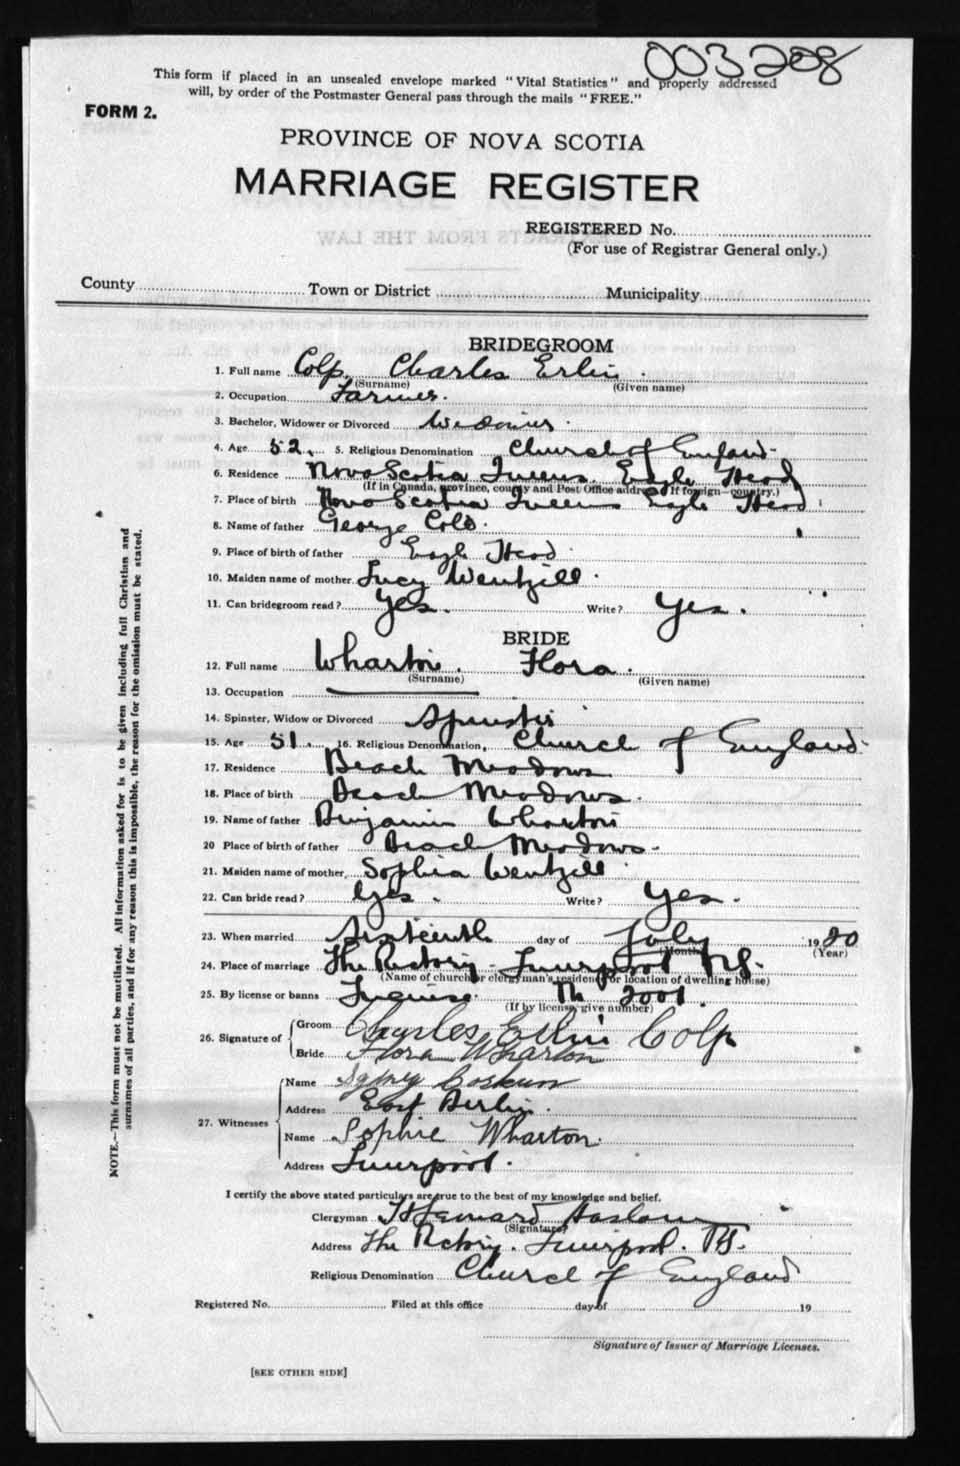 003208
This form if placed in an unsealed envelope marked "Vital Statistics" and properly addressed
will, by order of the Postmaster General pass through the mails "FREE."
FORM 2.
PROVINCE OF NOVA SCOTIA
MARRIAGE REGISTER
REGISTERED No.
(For use of Registrar General only.)
County Town or District Municipality
BRIDEGROOM
1. Full name Colp. Charles Erlin.
(Surname) (Given name)
2. Occupation Farmer.
3. Bachelor, Widower or Divorced Widower.
4. Age 52. 5. Religious Denomination Church of England.
6. Residence Nova Scotia Queens. Eagle Head
(If in Canada, province, county and Post Office address. If foreign—country.)
7. Place of birth Nova Scotia Queens Eagle Head
8. Name of father George Colp.
9. Place of birth of father Eagle Head
10. Maiden name of mother Lucy Wentzell.
11. Can bridegroom read? Yes. Write? Yes.
BRIDE
12. Full name Wharton. Flora.
(Surname) (Given name)
13. Occupation
14. Spinster, Widow or Divorced Spinster
15. Age 51. 16. Religious Denomination, Church of England.
17. Residence Beach Meadows
18. Place of birth Beach Meadows.
19. Name of father Benjamin Wharton
20 Place of birth of father Beach Meadows.
21. Maiden name of mother Sophia Wentzell
22. Can bride read? Yes. Write? Yes.
23. When married Sixteenth day of July 1920
(Month) (Year)
24. Place of marriage The Rectory. Liverpool N.S.
(Name of church or clergyman's residence or location of dwelling house)
25. By license or banns License. 2001.
(If by license, give number)
26. Signature of Groom Charles Erlin Colp
Bride Flora Wharton
27. Witnesses Name
Address East Berlin.
Name Sophie Wharton.
Address Liverpool.
I certify the above stated particulars are true to the best of my knowledge and belief.
Clergyman Haslam
(Signature)
Address The Rectory. Liverpool. N.S.
Religious Denomination Church of England
Registered No. Filed at this office day of 19
Signature of Issuer of Marriage Licenses.
[SEE OTHER SIDE]
NOTE.—This form must not be mutilated. All information asked for is to be given including full Christian and
surnames of all parties, and if for any reason this is impossible, the reason for the omission must be stated.